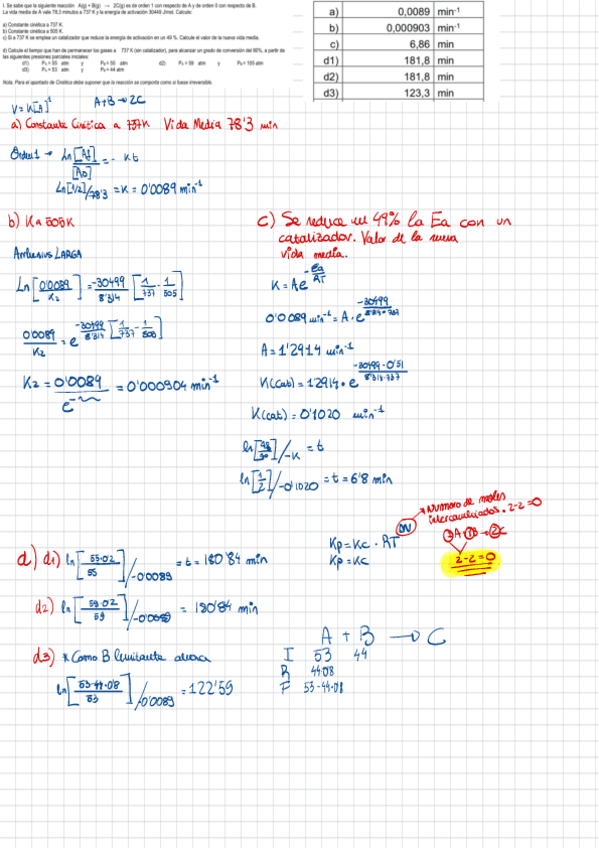 I. Se sabe que la siguiente reacción A(g) + B(g) → 2C(g) es de orden 1 con respecto de A y de orden 0 con respecto de B.
La vida media de A vale 78,3 minutos a 737 K y la energía de activación 30449 J/mol. Calcule:
a) Constante cinética a 737 K.
b) Constante cinética a 505 K.
c) Si a 737 K se emplea un catalizador que reduce la energía de activación en un 49 %. Calcule el valor de la nueva vida media.
d) Calcule el tiempo que han de permanecer los gases a 737 K (sin catalizador), para alcanzar un grado de conversión del 80%, a partir de
las siguientes presiones parciales iniciales:
d1) PA = 55 atm y PB = 55 atm d2) PA = 59 atm y PB = 105 atm
d3) PA = 53 atm y PB = 44 atm
Nota. Para el apartado de Cinética debe suponer que la reacción se comporta como si fuese irreversible.
a) 0,0089 min-1
b) 0,000903 min-1
c) 6,86 min
d1) 181,8 min
d2) 181,8 min
d3) 123,3 min
V = K[A]^1 A+B→2C
a) Constante Cinética a 737K Vida Media 78'3 min
Orden 1 → Ln [Af]/[A0] = - Kt
Ln[1/2]/78'3 = K = 0'0089 min-1
b) K a 505K
Arrhenius LARGA
Ln [0'0089/K2] = -30499/8'314 [1/737 - 1/505]
0'0089/K2 = e^(-30499/8'314 [1/737 - 1/505])
K2 = 0'0089/e^-~~ = 0'000904 min-1
c) Se reduce un 49% la Ea con un
catalizador. Valor de la nueva
vida media.
K = Ae^(-Ea/RT)
0'0089 min-1 = A · e^(-30499/8'314·737)
A = 1'2914 min-1
K(cat) = 1'2914 · e^(-30499·0'51/8'314·737)
K(cat) = 0'1020 min-1
ln[ ]/-K = t
ln[1/2]/-0'1020 = t = 6'8 min
d) d1) ln[55·0'2/55]/-0'0089 = t = 180'84 min
d2) ln[59·0'2/59]/-0'0089 = 180'84 min
d3) * Como B limitante ahora
ln[53-44·0'8/53]/-0'0089 = 122'59
Kp = Kc · RT^ΔN
Kp = Kc
* Numero de moles
intercambiados. 2-2 = 0
1A + 1B → 2C
2-2 = 0
A + B → C
I 53 44
R 44·0'8
F 53-44·0'8